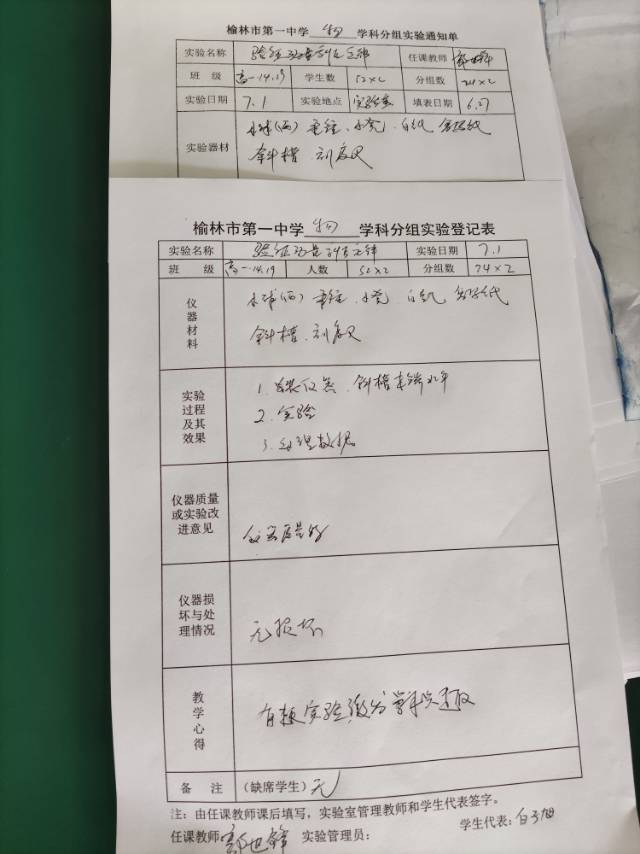 榆林市第一中学 物 学科分组实验通知单
实验名称 验证动量守恒定律 任课教师
班 级 高一14.19 学生数 52×2 分组数 24×2
实验日期 7.1 实验地点 实验室 填表日期 6.27
实验器材 小球(两) 重锤、小凳、白纸、复写纸
斜槽、刻度尺
榆林市第一中学 物 学科分组实验登记表
实验名称 验证动量守恒定律 实验日期 7.1
班 级 高一14.19 人数 52×2 分组数 24×2
仪器材料
小球(两) 重锤、小凳、白纸、复写纸
斜槽、刻度尺
实验过程及其效果
1. 安装仪器、斜槽末端水平
2. 实验
3. 处理数据
仪器质量或实验改进意见
仪器质量好
仪器损坏与处理情况
无损坏
教学心得
实验激发学科兴趣
备 注 (缺席学生) 无
注：由任课教师课后填写，实验室管理教师和学生代表签字。
任课教师: 实验管理员: 学生代表: 白